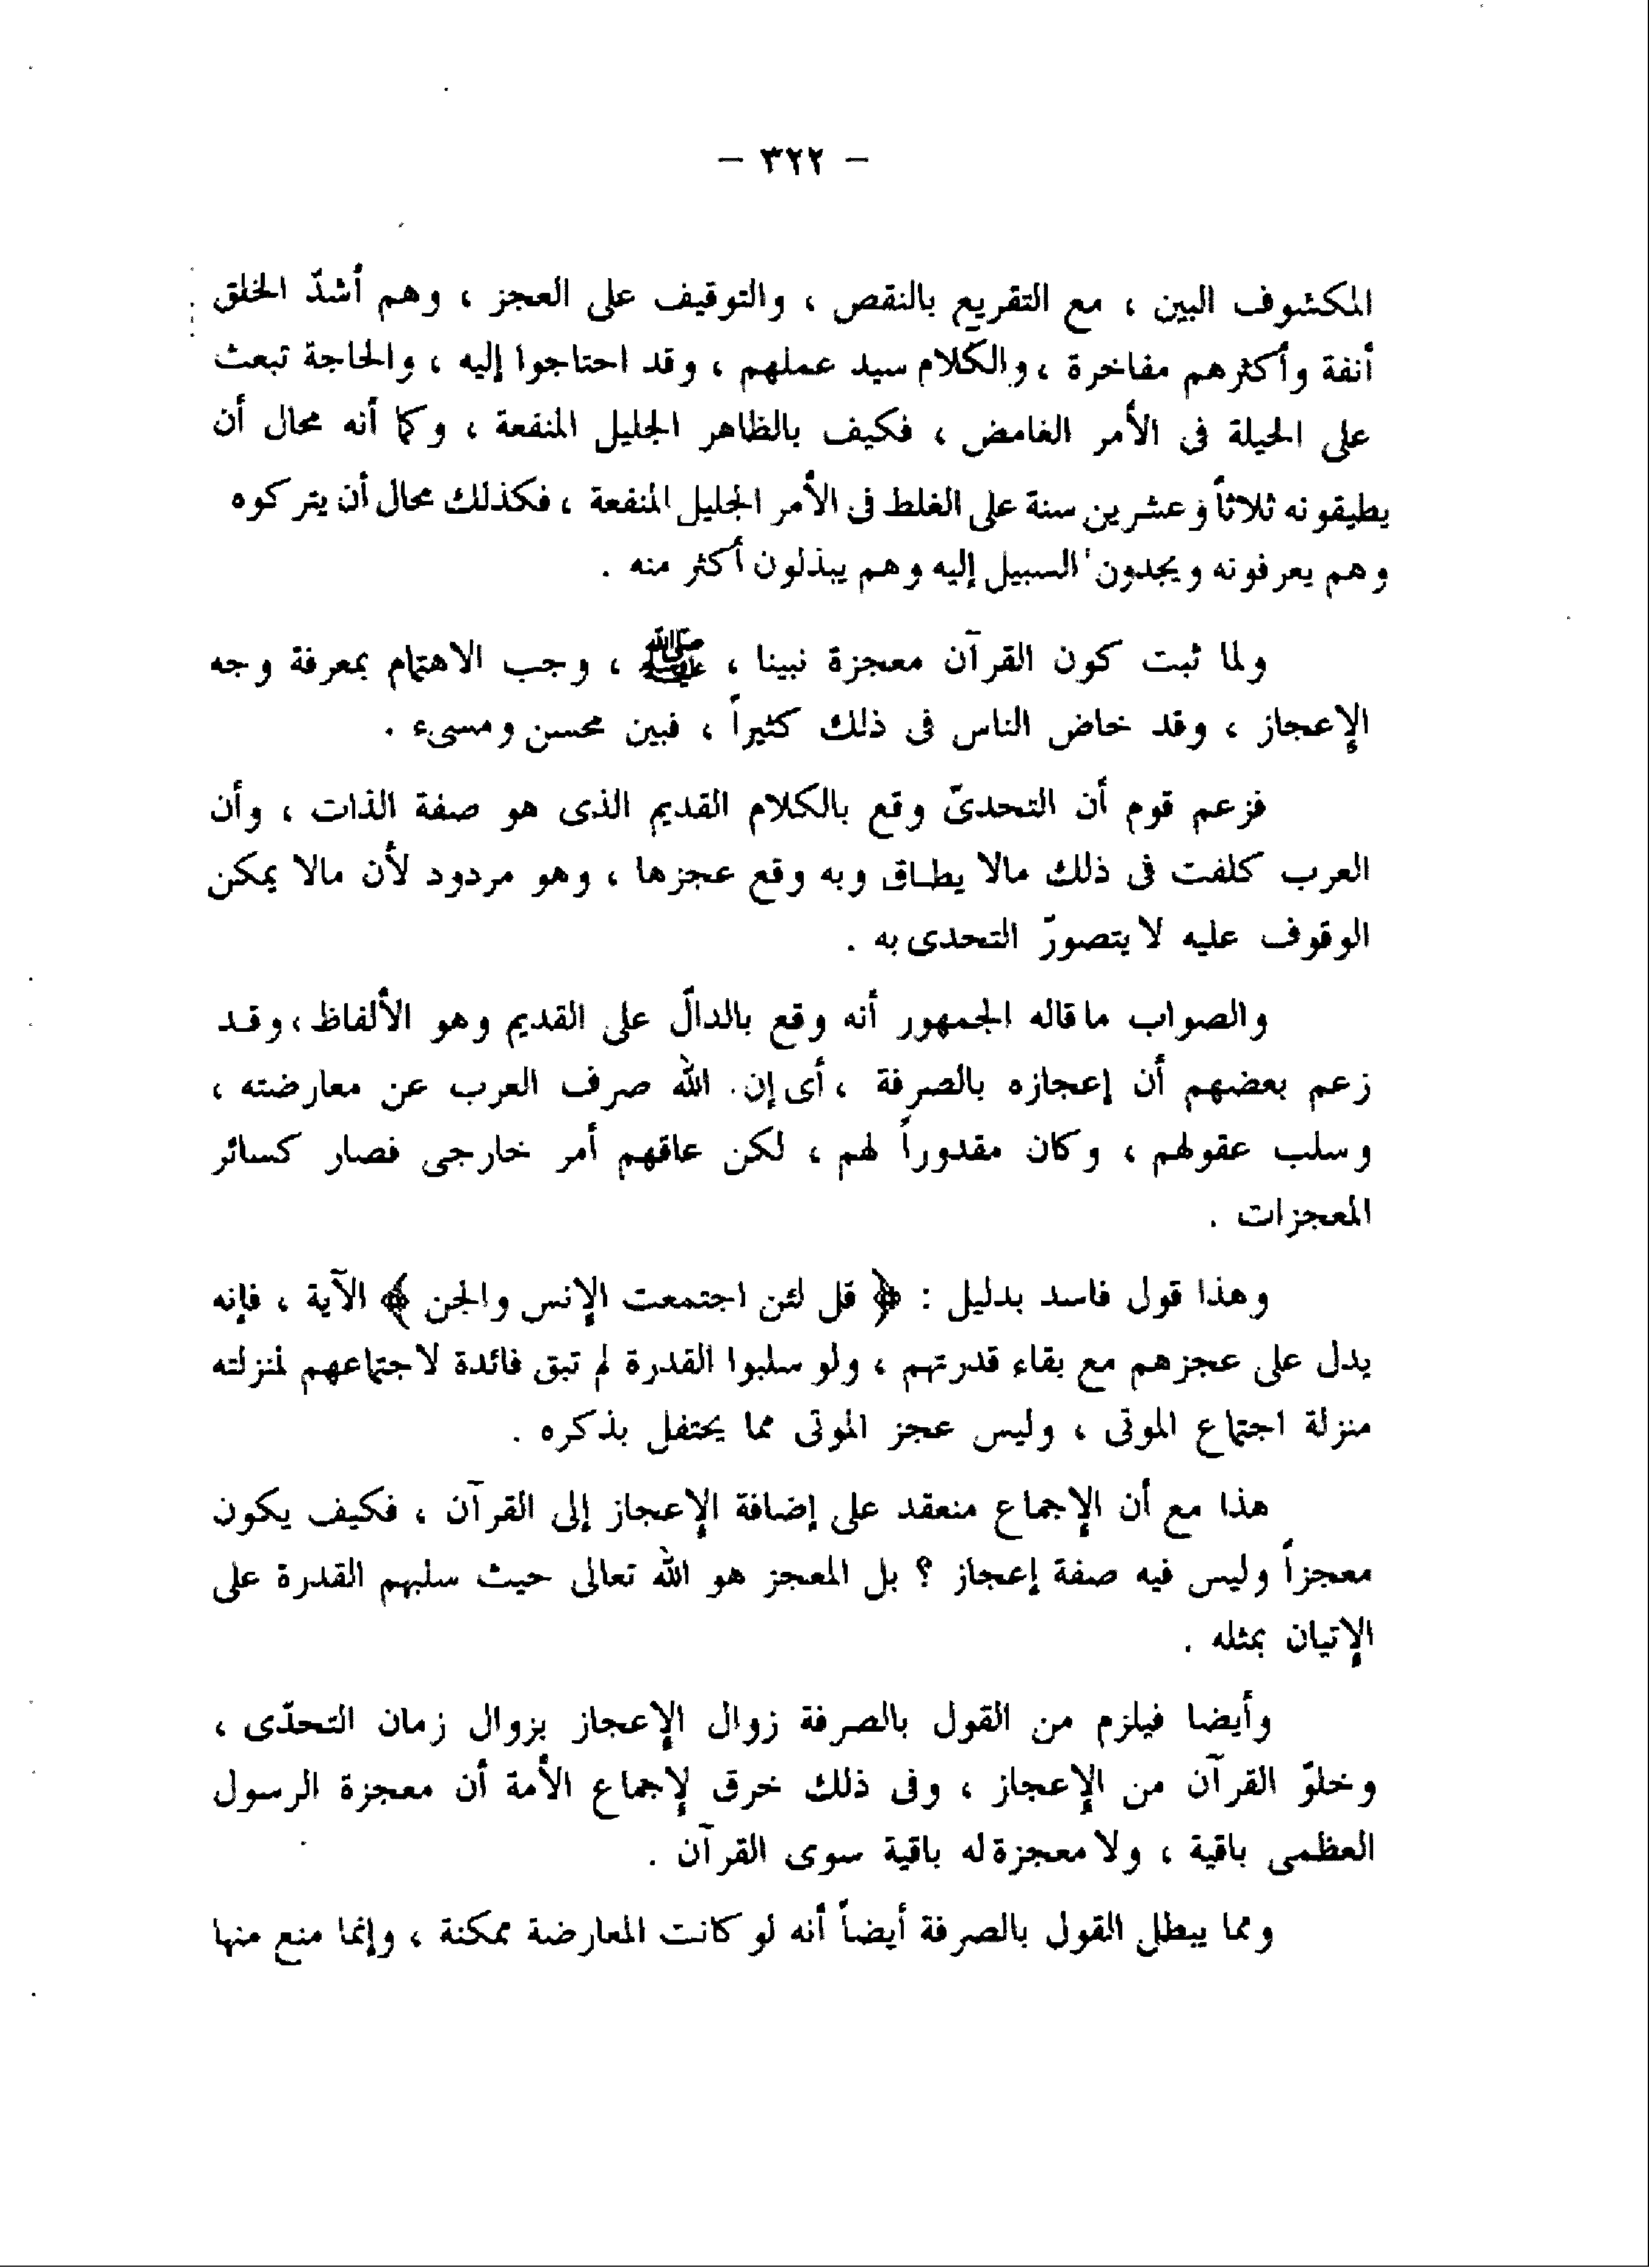 – ٣٢٢ –
المكشوف البين ، مع التقريع بالنقص ، والتوقيف على العجز ، وهم أشدّ الخلق
أنفة وأكثرهم مفاخرة ، والكلام سيد عملهم ، وقد احتاجوا إليه ، والحاجة تبعث
على الحيلة فى الأمر الغامض ، فكيف بالظاهر الجليل المنفعة ، وكما أنه محال أن
يطيقونه ثلاثاً وعشرين سنة على الغلط فى الأمر الجليل المنفعة ، فكذلك محال أن يتركوه
وهم يعرفونه ويجدون السبيل إليه وهم يبذلون أكثر منه .
ولما ثبت كون القرآن معجزة نبينا ، ﷺ ، وجب الاهتمام بمعرفة وجه
الإعجاز ، وقد خاض الناس فى ذلك كثيراً ، فبين محسن ومسىء .
فزعم قوم أن التحدىّ وقع بالكلام القديم الذى هو صفة الذات ، وأن
العرب كلفت فى ذلك مالا يطاق وبه وقع عجزها ، وهو مردود لأن مالا يمكن
الوقوف عليه لا يتصورّ التحدى به .
والصواب ما قاله الجمهور أنه وقع بالدالّ على القديم وهو الألفاظ ، وقد
زعم بعضهم أن إعجازه بالصرفة ، أى إن الله صرف العرب عن معارضته ،
وسلب عقولهم ، وكان مقدوراً لهم ، لكن عاقهم أمر خارجى فصار كسائر
المعجزات .
وهذا قول فاسد بدليل : ﴿ قل لئن اجتمعت الإنس والجن ﴾ الآية ، فإنه
يدل على عجزهم مع بقاء قدرتهم ، ولو سلبوا القدرة لم تبق فائدة لاجتماعهم لمنزلته
منزلة اجتماع الموتى ، وليس عجز الموتى مما يحتفل بذكره .
هذا مع أن الإجماع منعقد على إضافة الإعجاز إلى القرآن ، فكيف يكون
معجزاً وليس فيه صفة إعجاز ؟ بل المعجز هو الله تعالى حيث سلبهم القدرة على
الإتيان بمثله .
وأيضا فيلزم من القول بالصرفة زوال الإعجاز بزوال زمان التحدّى ،
وخلوّ القرآن من الإعجاز ، وفى ذلك خرق لإجماع الأمة أن معجزة الرسول
العظمى باقية ، ولا معجزة له باقية سوى القرآن .
ومما يبطل القول بالصرفة أيضاً أنه لو كانت المعارضة ممكنة ، وإنما منع منها